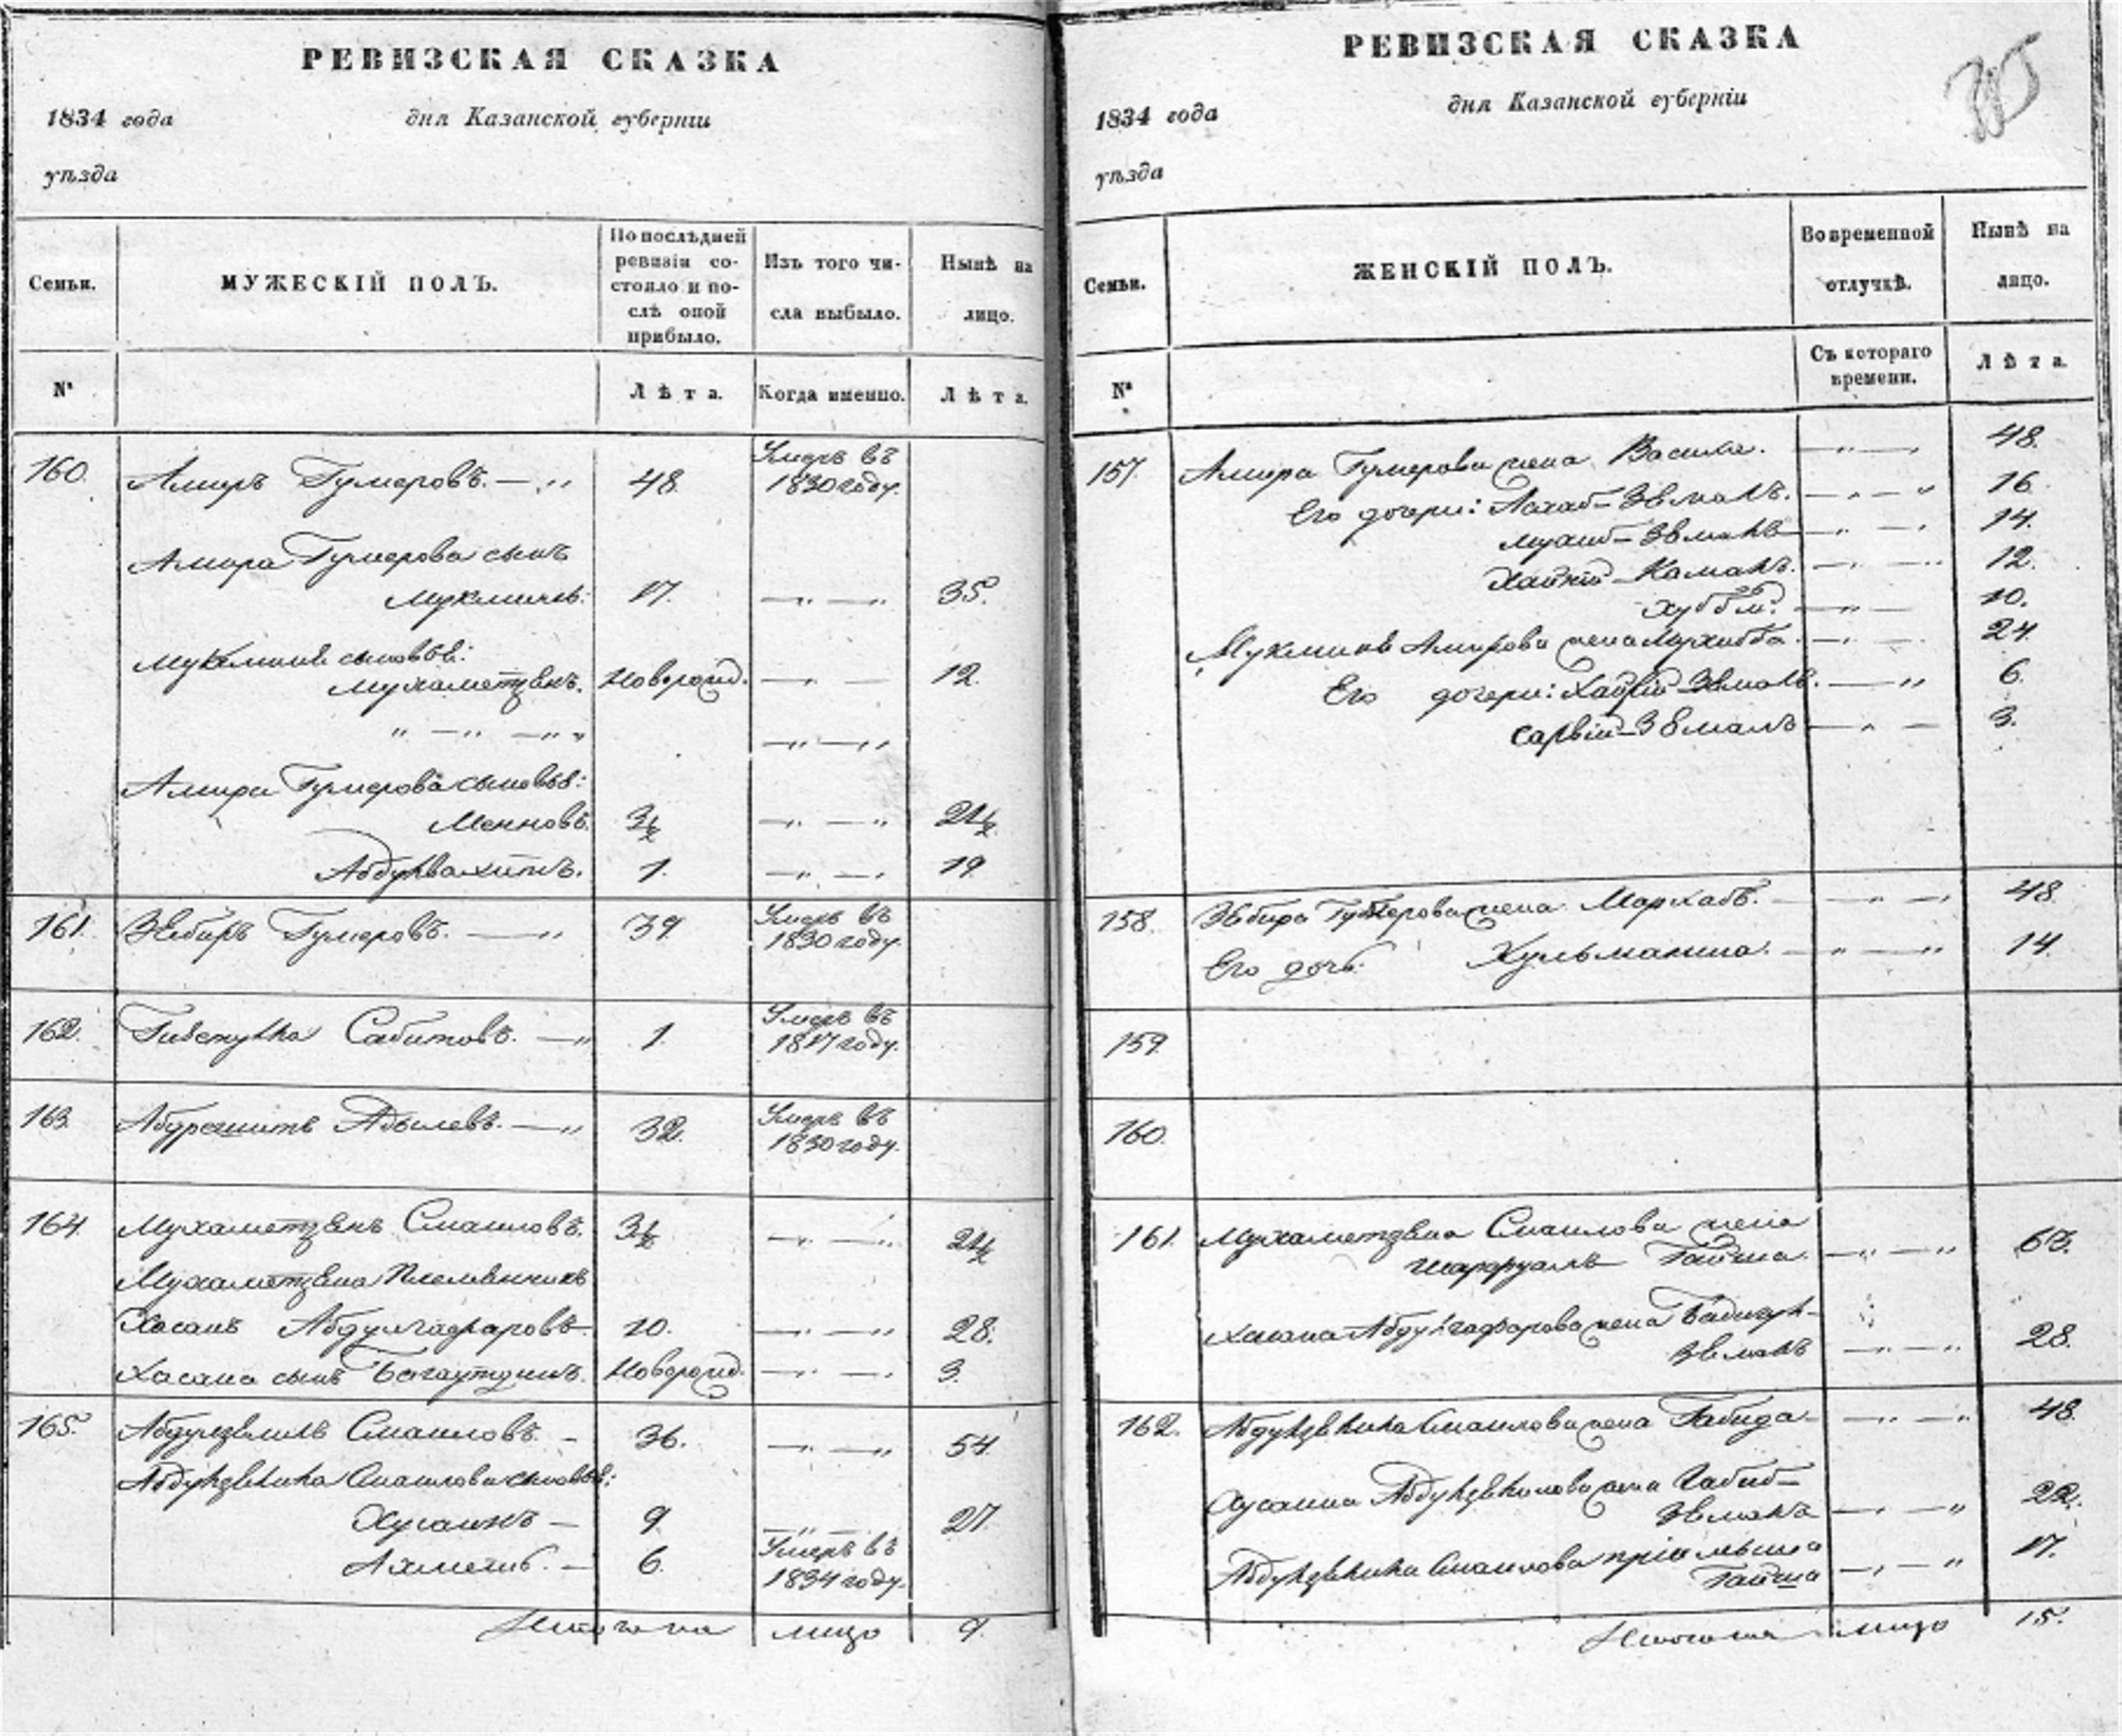 РЕВИЗСКАЯ СКАЗКА
1834 года дня Казанской губерніи
уѣзда
Семьи. МУЖЕСКІЙ ПОЛЪ. По послѣдней ревизіи состояло и послѣ оной прибыло. Изъ того числа выбыло. Нынѣ на лицо.
№ Лѣта. Когда именно. Лѣта.
160. Амиръ Гумеровъ. 48. Умеръ въ 1830 году.
Амира Гумерова сынъ
Мукминъ: 17. 35.
Мукмина сыновья:
Мухаметзянъ. Новорожд. 12.
Амира Гумерова сыновья:
3½ 21½
Абдулвахитъ. 1. 19
161. Зябиръ Гумеровъ. 39. Умеръ въ 1830 году.
162. Сабитовъ. 1. Умеръ въ 1817 году.
163. Абдрешитъ Адылевъ. 32. Умеръ въ 1830 году.
164. Мухаметзянъ Смаиловъ. 3½ 21½
Мухаметзяна племянникъ
Хасанъ Абдулгафаровъ. 10. 28.
Хасана сынъ Богаутдинъ. Новорожд. 3.
165. Абдулзялилъ Смаиловъ. 36. 54.
Абдулзялила Смаилова сыновья:
Хусаинъ 9. 27.
6. Умеръ въ 1834 году.
Итого на лицо 9.
РЕВИЗСКАЯ СКАЗКА
1834 года дня Казанской губерніи
уѣзда
Семьи. ЖЕНСКІЙ ПОЛЪ. Во временной отлучкѣ. Нынѣ на лицо.
№ Съ котораго времени. Лѣта.
157. Амира Гумерова жена Васима. 48.
Его дочери: Асхаб-Зямалъ. 16.
Зямалъ 14.
Камалъ. 12.
10.
Мукмина Амирова жена Мухибба. 24.
Его дочери: Хаирій Зямалъ. 6.
Сарвій-Зямалъ 3.
158. Зябира Гумерова жена Мархабъ. 48.
Его дочь: 14.
159.
160.
161. Мухаметзяна Смаилова жена
Гайша. 63.
Хасана Абдулгафарова жена
Зямалъ 28.
162. Абдулзялила Смаилова жена Габида 48.
Хусаина Абдулзялилова жена Хабиб-
Зямалъ 22.
Абдулзялила Смаилова пріемыша
Гайша 17.
Итого на лицо 15.